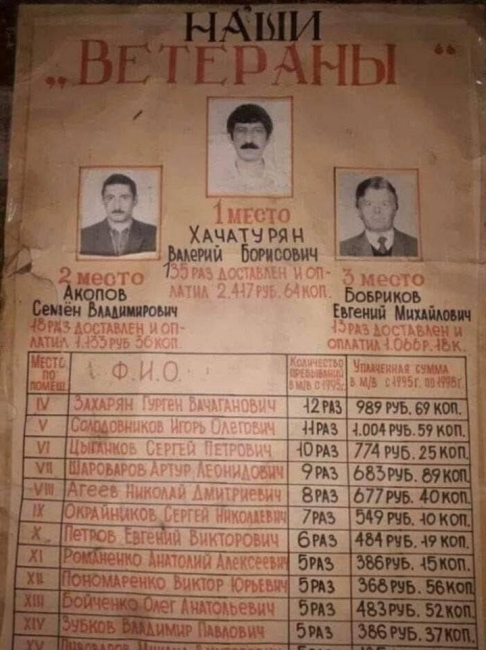 НАШИ
„ВЕТЕРАНЫ“
1 МЕСТО
ХАЧАТУРЯН
ВАЛЕРИЙ БОРИСОВИЧ
135 РАЗ ДОСТАВЛЕН И ОП-
ЛАТИЛ 2.417 РУБ. 64 КОП.
2 МЕСТО
АКОПОВ
СЕМЁН ВЛАДИМИРОВИЧ
18 РАЗ ДОСТАВЛЕН И ОП-
ЛАТИЛ 1.133 РУБ 56 КОП.
3 МЕСТО
БОБРИКОВ
ЕВГЕНИЙ МИХАЙЛОВИЧ
13 РАЗ ДОСТАВЛЕН И
ОПЛАТИЛ 1.066 Р. 18 К.
МЕСТО ПО ПОМЕЩ. Ф.И.О. КОЛИЧЕСТВО ПРЕБЫВАНИЙ В М/В С 1995г. УПЛАЧЕННАЯ СУММА В М/В С 1995г. ПО 1998г.
IV ЗАХАРЯН ГУРГЕН ВАЧАГАНОВИЧ 12 РАЗ 989 РУБ. 69 КОП.
V СОЛОДОВНИКОВ ИГОРЬ ОЛЕГОВИЧ 11 РАЗ 1.004 РУБ. 59 КОП.
VI ЦЫГАНКОВ СЕРГЕЙ ПЕТРОВИЧ 10 РАЗ 774 РУБ. 25 КОП.
VII ШАРОВАРОВ АРТУР ЛЕОНИДОВИЧ 9 РАЗ 683 РУБ. 89 КОП.
VIII АГЕЕВ НИКОЛАЙ ДМИТРИЕВИЧ 8 РАЗ 677 РУБ. 40 КОП.
IX ОКРАЙНИКОВ СЕРГЕЙ НИКОЛАЕВИЧ 7 РАЗ 549 РУБ. 10 КОП.
X ПЕТРОВ ЕВГЕНИЙ ВИКТОРОВИЧ 6 РАЗ 484 РУБ. 19 КОП.
XI РОМАНЕНКО АНАТОЛИЙ АЛЕКСЕЕВИЧ 5 РАЗ 386 РУБ. 15 КОП.
XII ПОНОМАРЕНКО ВИКТОР ЮРЬЕВИЧ 5 РАЗ 368 РУБ. 56 КОП.
XIII БОЙЧЕНКО ОЛЕГ АНАТОЛЬЕВИЧ 5 РАЗ 483 РУБ. 52 КОП.
XIV ЗУБКОВ ВЛАДИМИР ПАВЛОВИЧ 5 РАЗ 386 РУБ. 37 КОП.
XV